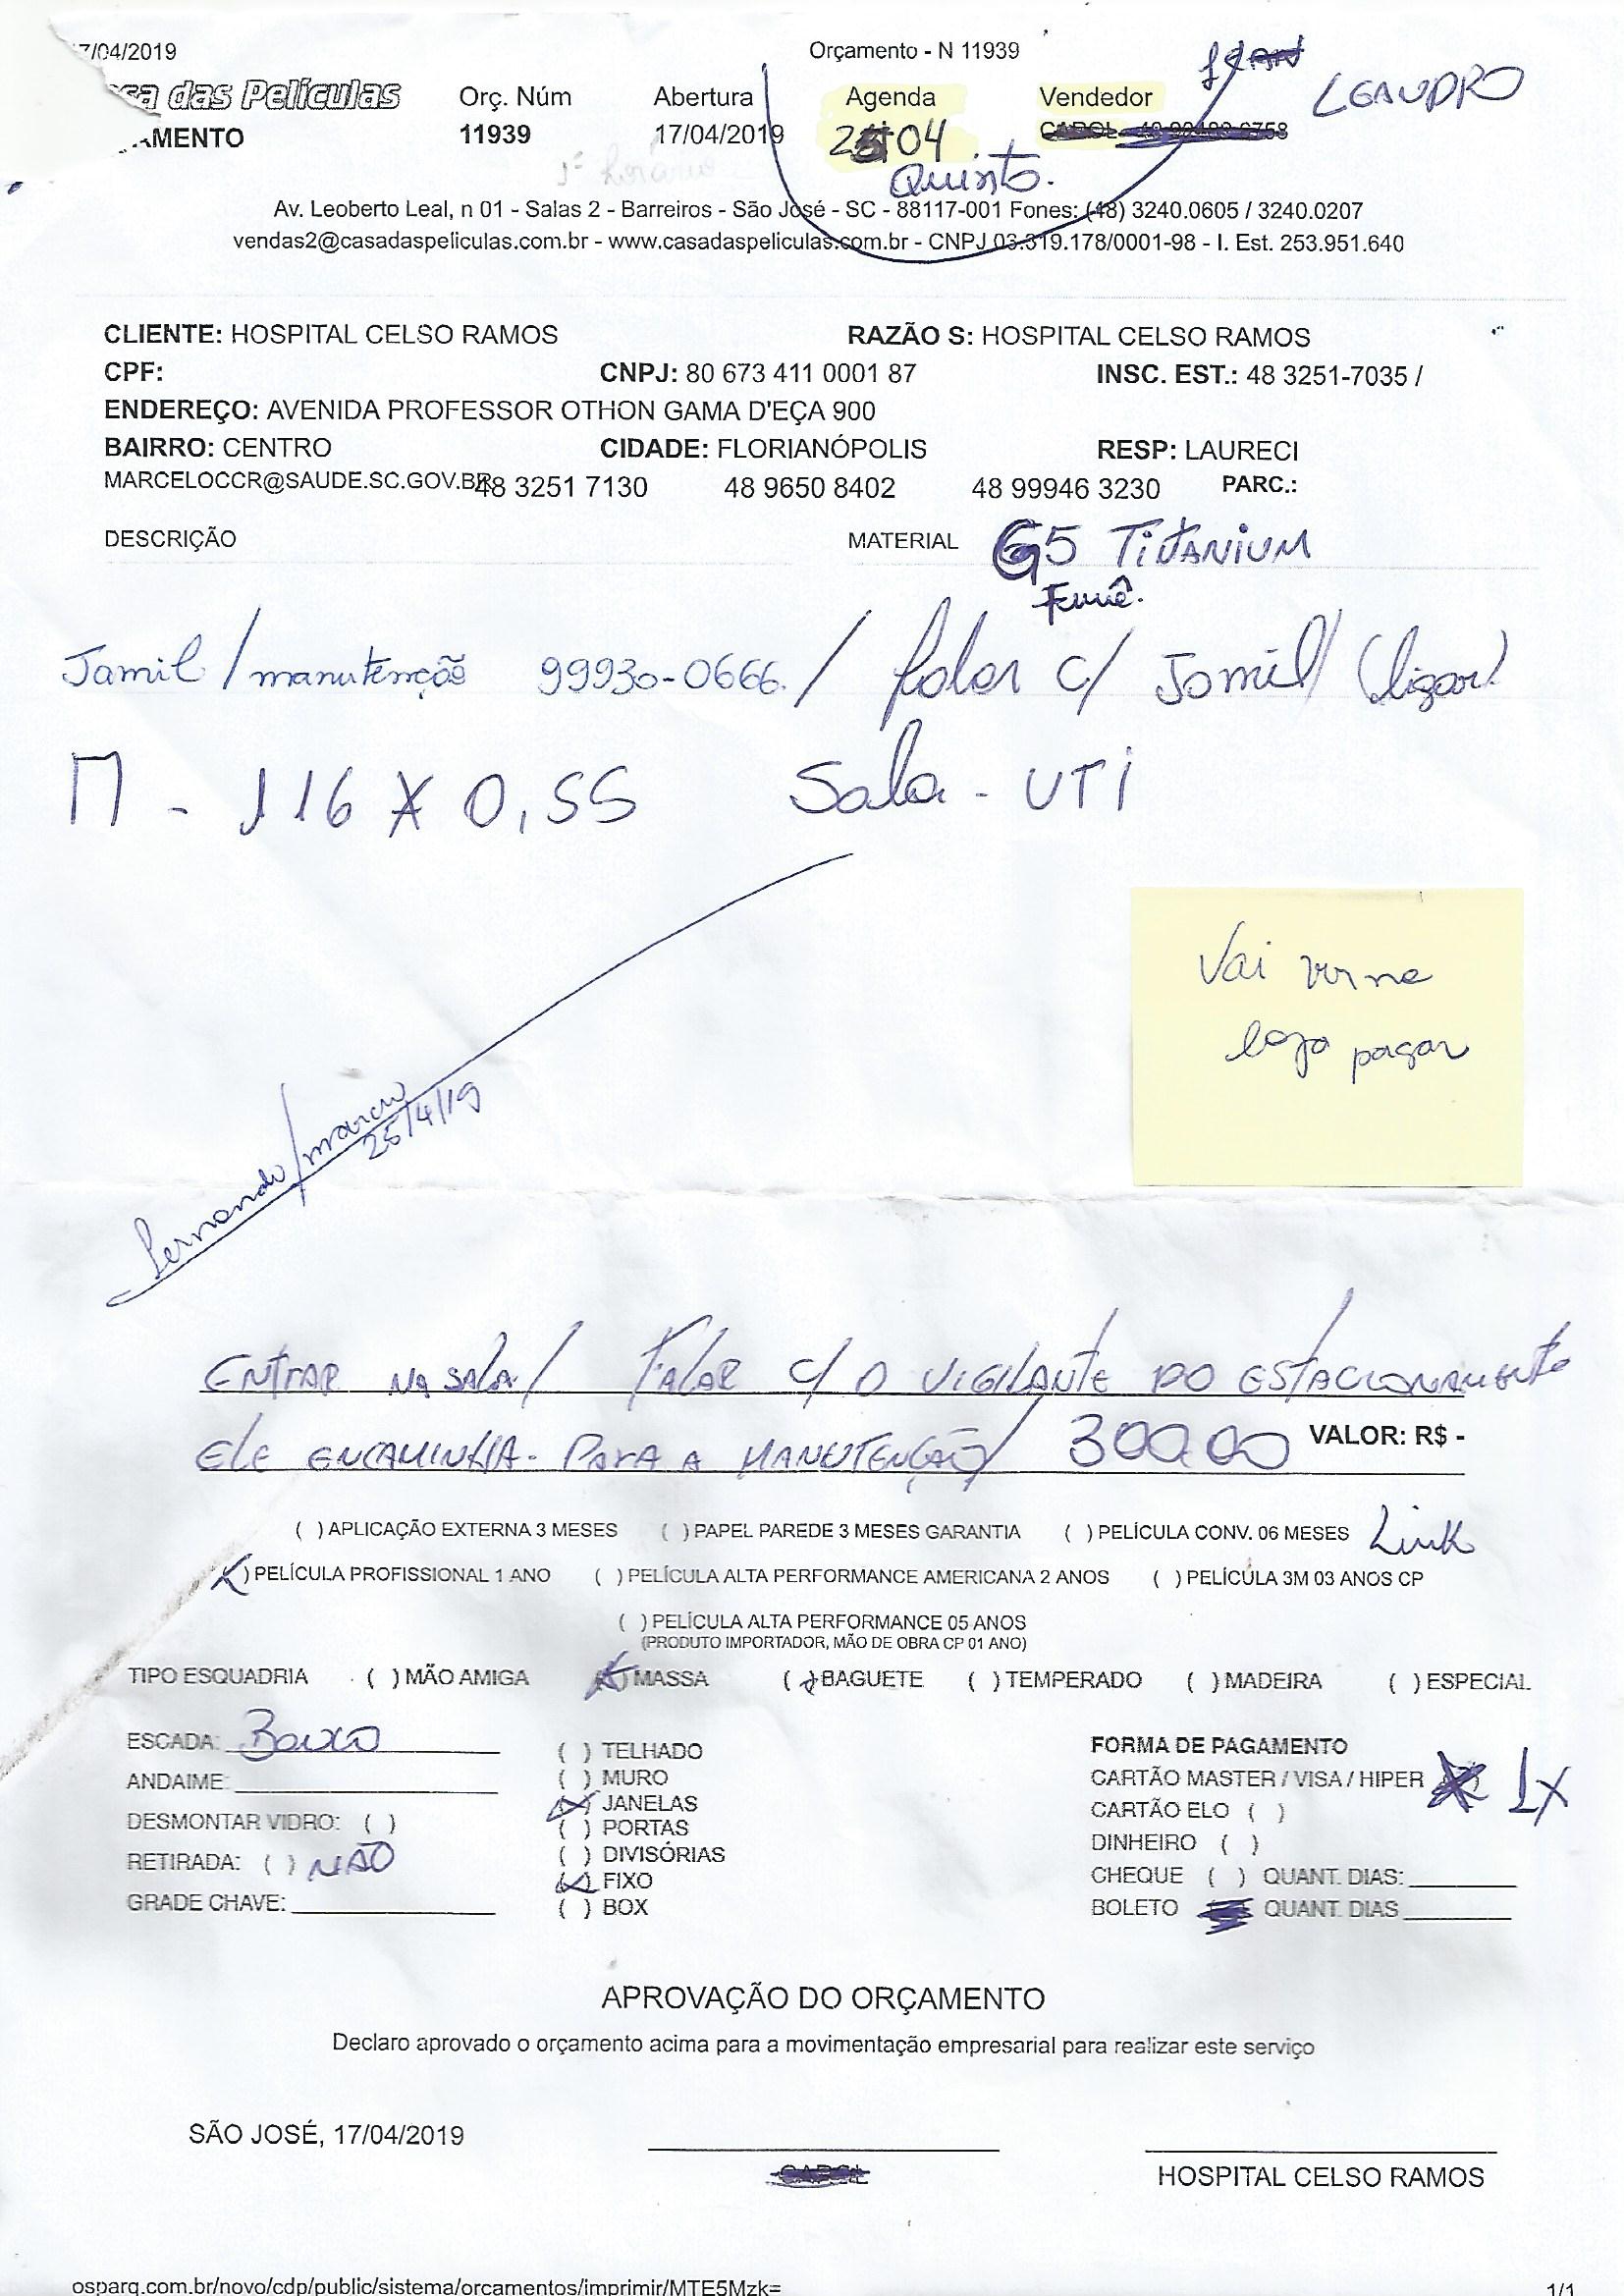 7/04/2019 Orçamento - N 11939
sa das Películas Orç. Núm Abertura Agenda Vendedor LEANDRO
AMENTO 11939 17/04/2019 25 04
1º horário Quinta.
Av. Leoberto Leal, n 01 - Salas 2 - Barreiros - São José - SC - 88117-001 Fones: (48) 3240.0605 / 3240.0207
vendas2@casadaspeliculas.com.br - www.casadaspeliculas.com.br - CNPJ 03.319.178/0001-98 - I. Est. 253.951.640
CLIENTE: HOSPITAL CELSO RAMOS RAZÃO S: HOSPITAL CELSO RAMOS
CPF: CNPJ: 80 673 411 0001 87 INSC. EST.: 48 3251-7035 /
ENDEREÇO: AVENIDA PROFESSOR OTHON GAMA D'EÇA 900
BAIRRO: CENTRO CIDADE: FLORIANÓPOLIS RESP: LAURECI
MARCELOCCR@SAUDE.SC.GOV.BR 48 3251 7130 48 9650 8402 48 99946 3230 PARC.:
DESCRIÇÃO MATERIAL G5 TITANIUM
Fumê.
Jamil / manutenção 99930-0666. / falar c/ Jamil / (ligar)
M - 116 X 0,55 Sala - UTI
Vai vir na
loja pagar
Fernando / marcio
25/4/19
ENTRAR NA SALA / FALAR C/ O VIGILANTE DO ESTACIONAMENTO
ELE ENCAMINHA - PARA A MANUTENÇÃO / 300,00 VALOR: R$ -
( ) APLICAÇÃO EXTERNA 3 MESES ( ) PAPEL PAREDE 3 MESES GARANTIA ( ) PELÍCULA CONV. 06 MESES Link
(X) PELÍCULA PROFISSIONAL 1 ANO ( ) PELÍCULA ALTA PERFORMANCE AMERICANA 2 ANOS ( ) PELÍCULA 3M 03 ANOS CP
( ) PELÍCULA ALTA PERFORMANCE 05 ANOS
(PRODUTO IMPORTADOR, MÃO DE OBRA CP 01 ANO)
TIPO ESQUADRIA ( ) MÃO AMIGA (X) MASSA ( ) BAGUETE ( ) TEMPERADO ( ) MADEIRA ( ) ESPECIAL
ESCADA: Baixo
ANDAIME:
DESMONTAR VIDRO: ( )
RETIRADA: ( ) NÃO
GRADE CHAVE:
( ) TELHADO
( ) MURO
(X) JANELAS
( ) PORTAS
( ) DIVISÓRIAS
(X) FIXO
( ) BOX
FORMA DE PAGAMENTO
CARTÃO MASTER / VISA / HIPER (X) 1x
CARTÃO ELO ( )
DINHEIRO ( )
CHEQUE ( ) QUANT. DIAS:
BOLETO QUANT. DIAS
APROVAÇÃO DO ORÇAMENTO
Declaro aprovado o orçamento acima para a movimentação empresarial para realizar este serviço
SÃO JOSÉ, 17/04/2019
CAROL HOSPITAL CELSO RAMOS
osparq.com.br/novo/cdp/public/sistema/orcamentos/imprimir/MTE5Mzk= 1/1